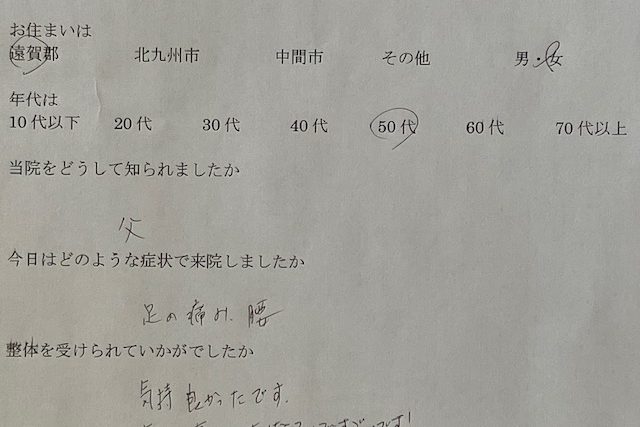 お住まいは
遠賀郡 北九州市 中間市 その他 男・女
年代は
10代以下 20代 30代 40代 50代 60代 70代以上
当院をどうして知られましたか
父
今日はどのような症状で来院しましたか
足の痛み、腰
整体を受けられていかがでしたか
気持良かったです。